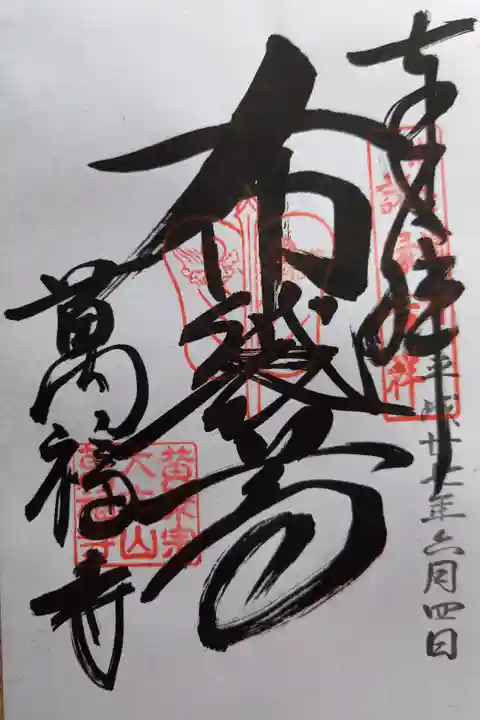 奉拝
平成廿七年六月四日
布袋尊
黄檗宗
大本山
萬福寺
萬福寺